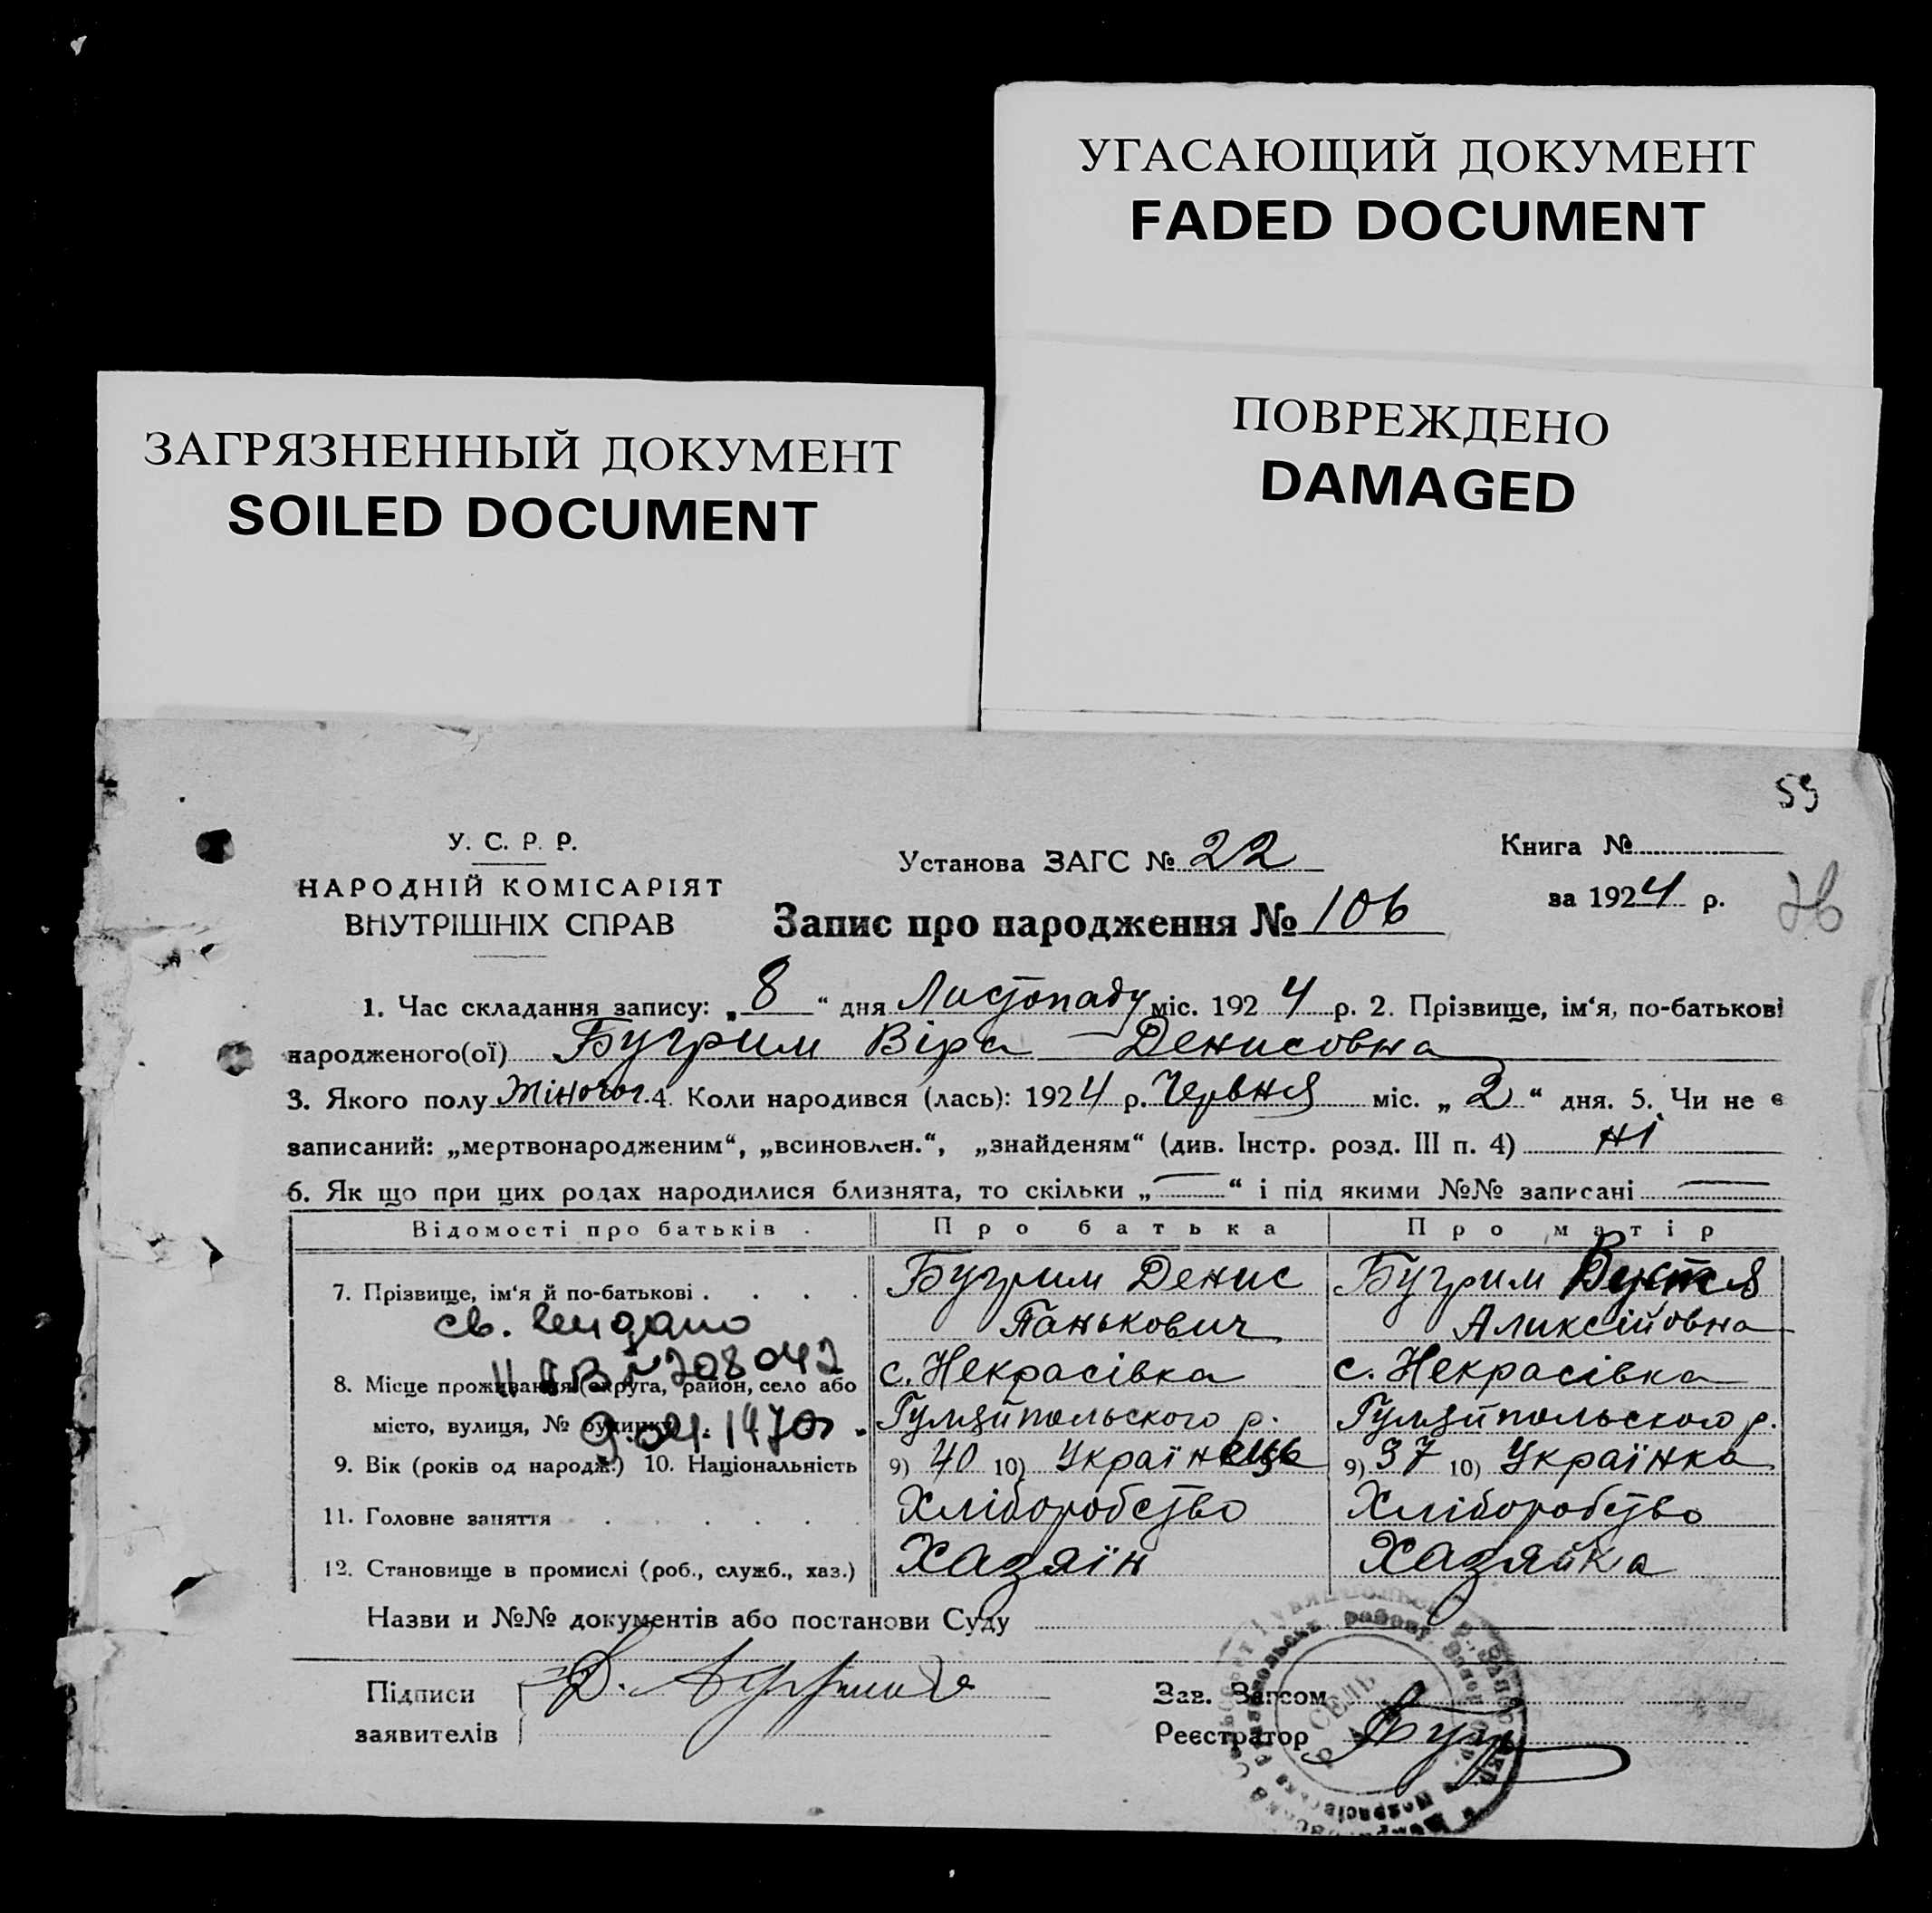 УГАСАЮЩИЙ ДОКУМЕНТ
FADED DOCUMENT
ЗАГРЯЗНЕННЫЙ ДОКУМЕНТ
SOILED DOCUMENT
ПОВРЕЖДЕНО
DAMAGED
55
У. С. Р. Р.
НАРОДНІЙ КОМІСАРІЯТ
ВНУТРІШНІХ СПРАВ
Установа ЗАГС № 22
Книга №
за 1924 р.
Запис про народження № 106
1. Час складання запису: „8“ дня Листопаду міс. 1924 р. 2. Прізвище, ім‘я, по-батькові
народженого(ої) Бугрим Віра Денисовна
3. Якого полу Жіногог 4. Коли народився (лась): 1924 р. Червня міс. „2“ дня. 5. Чи не є
записаний: „мертвонародженим“, „всиновлен.“, „знайденям“ (див. Інстр. розд. III п. 4) ні
6. Як що при цих родах народилися близнята, то скільки „—“ і під якими №№ записані —
Відомості про батьків Про батька Про матір
7. Прізвище, ім‘я й по-батькові Бугрим Денис Бугрим
Панькович Аликсійовна
8. Місце проживання (округа, район, село або с. Некрасівка с. Некрасівка
місто, вулиця, № будинку) Гуляйпольского р. Гуляйпольского р.
св.
№ 208042
9. Вік (років од народж.) 10. Національність 9) 40 10) Українець 9) 37 10) Українка
11. Головне заняття Хліборобство Хліборобство
12. Становище в промислі (роб., служб., хаз.) Хазяїн Хазяйка
Назви и №№ документів або постанови Суду
Підписи
заявителів
Зав. Загсом
Реєстратор